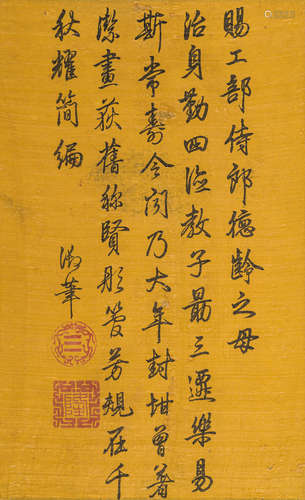 賜工部侍郎德齡之母
治身勤四德教子最三遷樂易
斯常壽令聞乃大年封坩曾著
潔畫荻舊稱賢彤管芳規在千
秋耀簡編
御筆
☰
隆